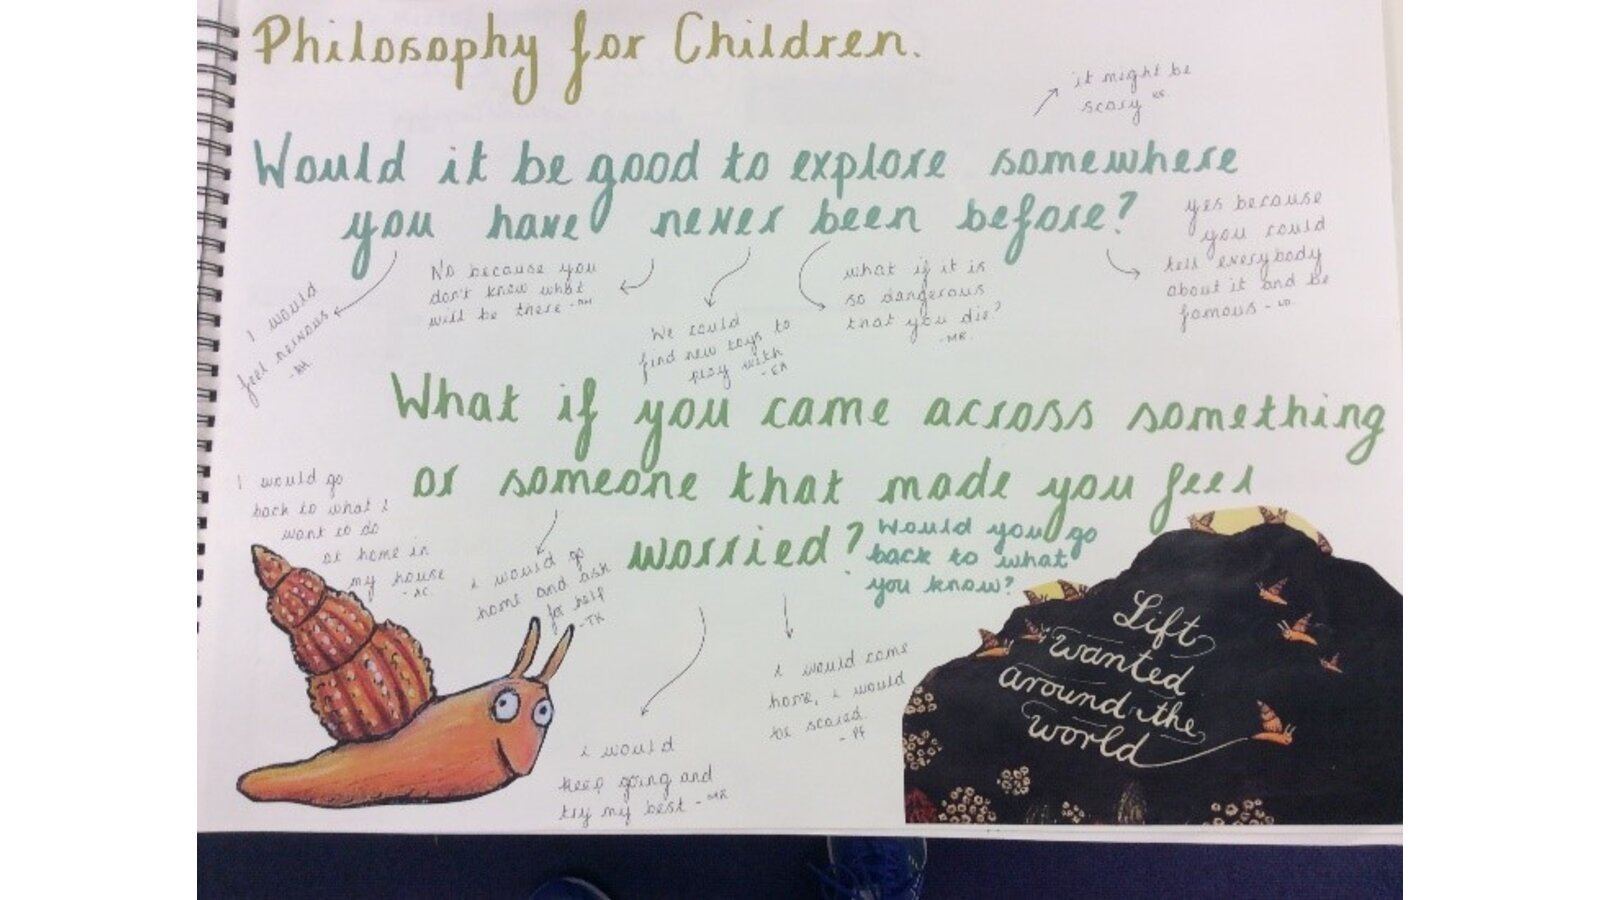 Philosophy for Children.
it might be
scary
Would it be good to explore somewhere
you have never been before?
yes because
you could
tell everybody
about it and be
famous
I would
feel nervous
No because you
don't know what
will be there
We could
find new toys to
play with
- EA
what if it is
so dangerous
that you die?
- MR.
What if you came across something
or someone that made you feel
worried?
Would you go
back to what
you know?
I would go
back to what I
want to do
at home in
my house
- AC.
i would go
home and ask
for help
- TK
i would
keep going and
try my best - MR
i would come
home, i would
be scared.
- PF
Lift
wanted
around the
world